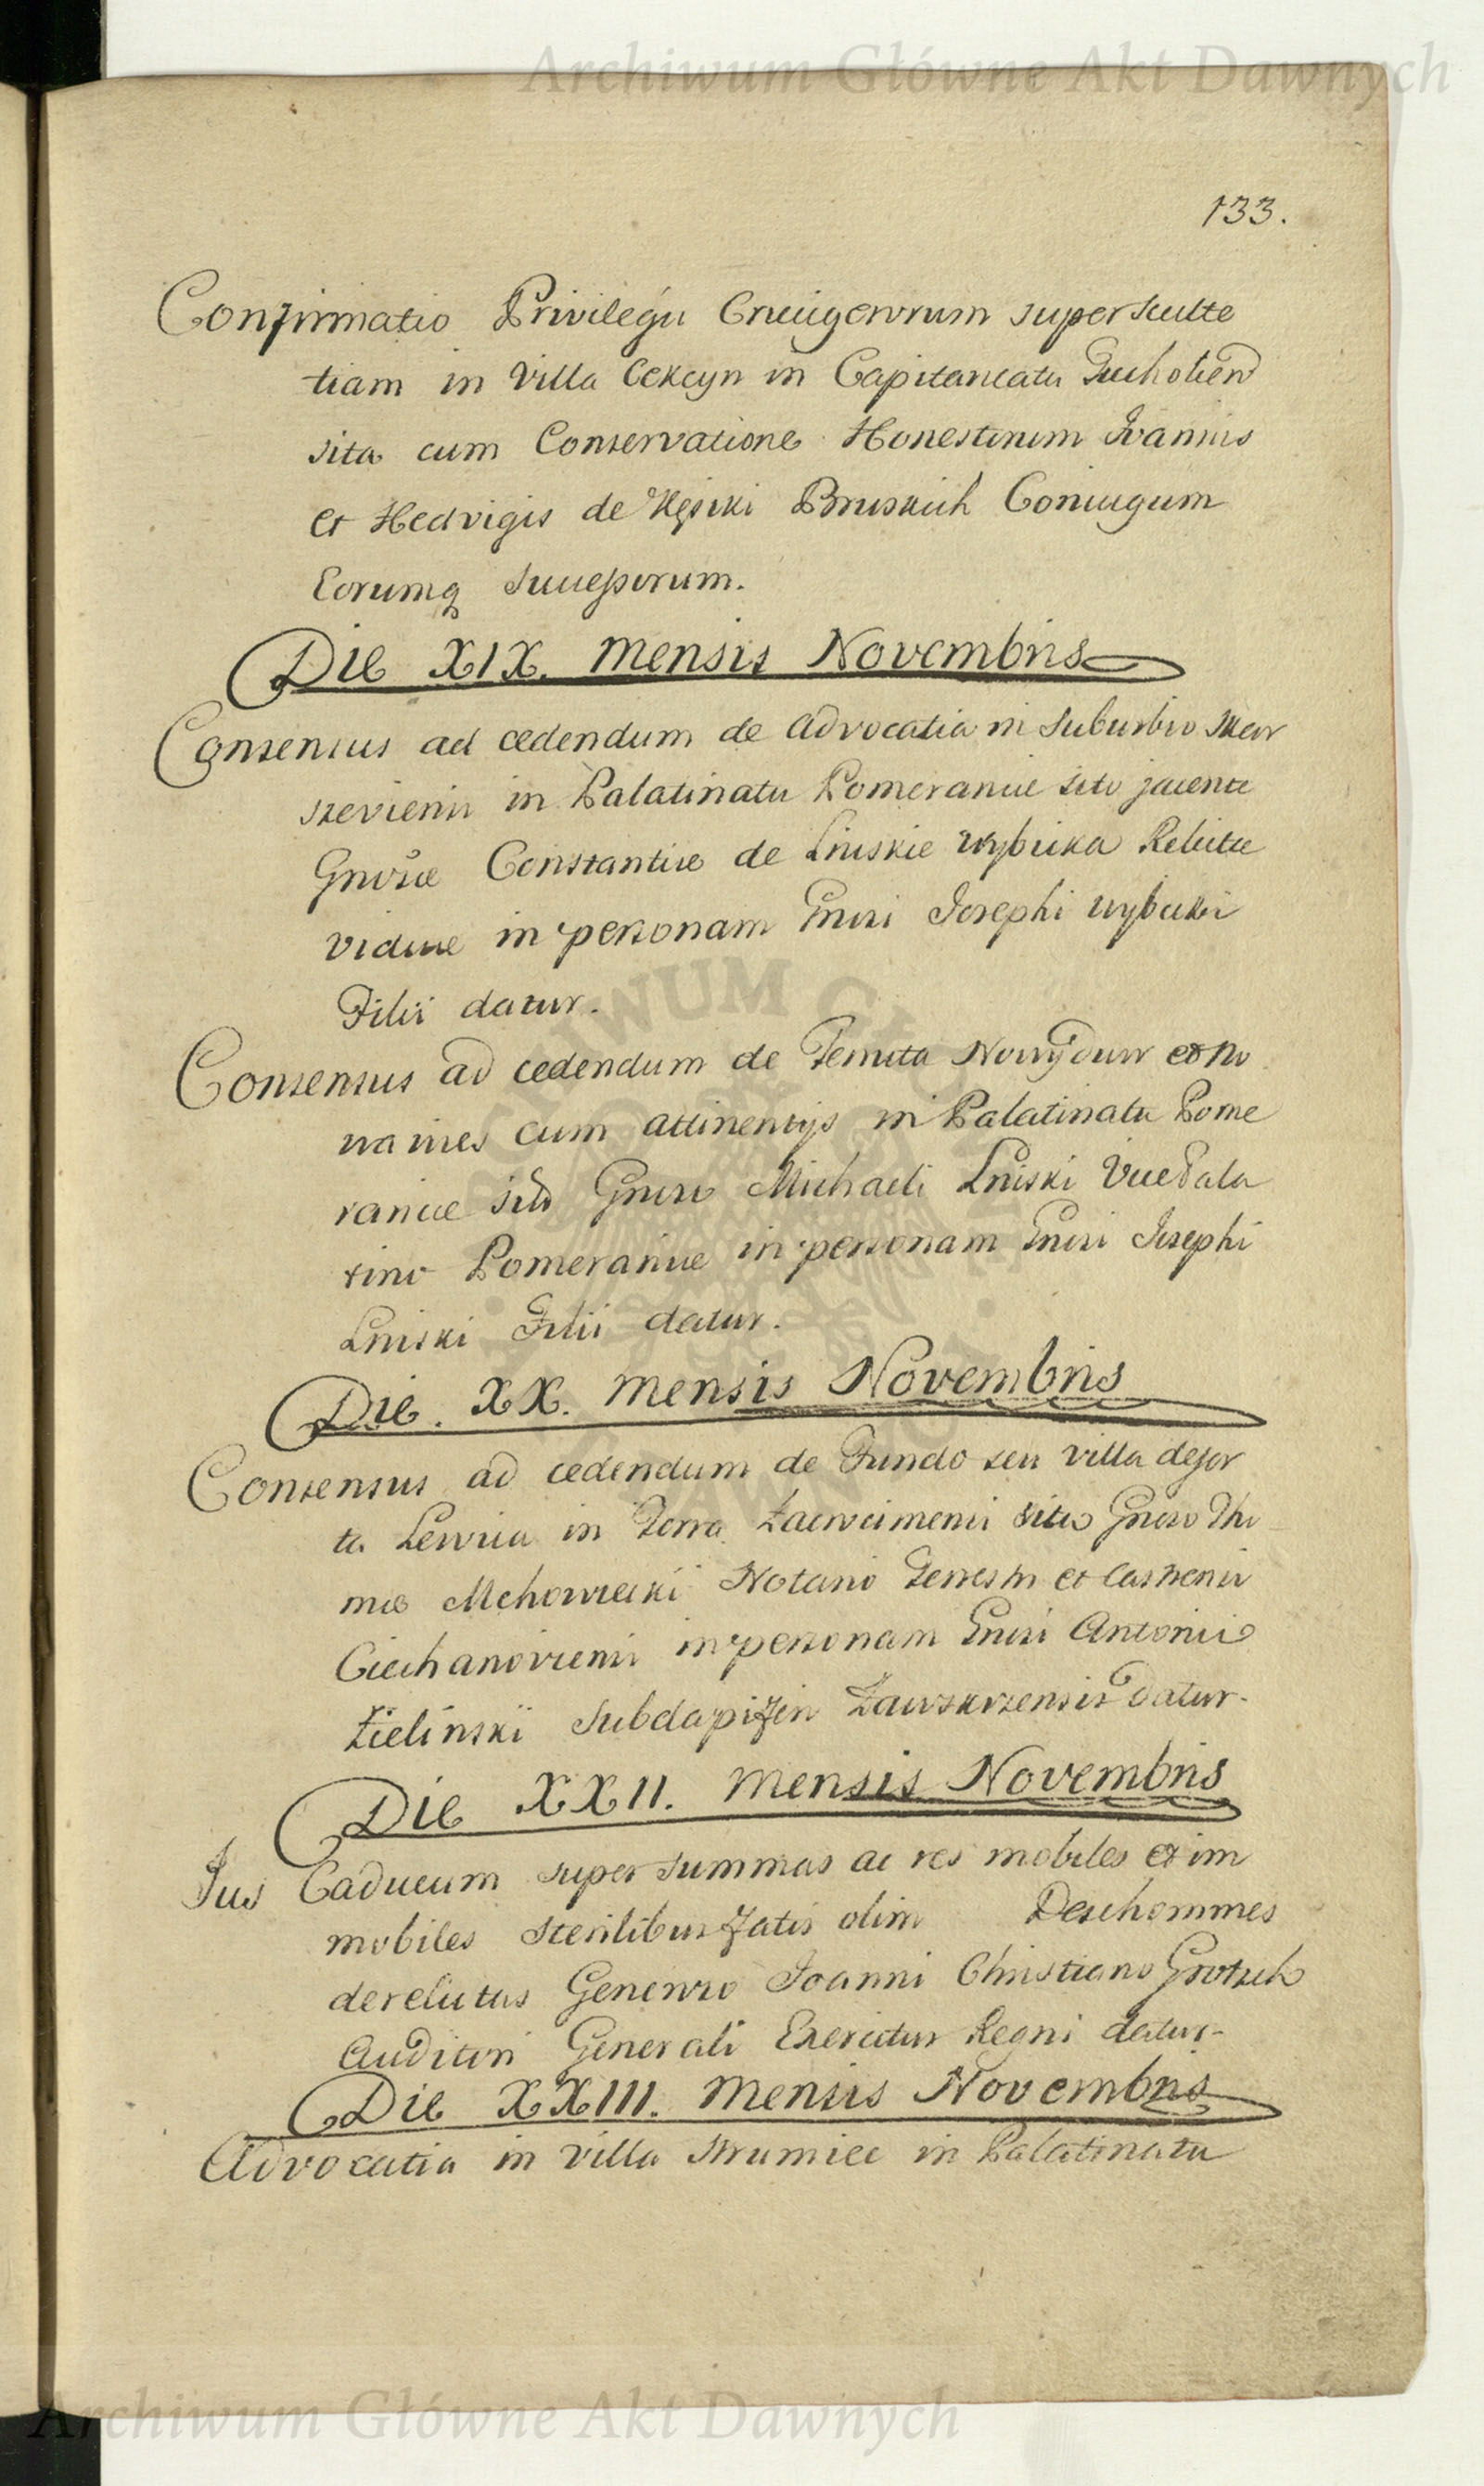 Archiwum Główne Akt Dawnych
133.
Confirmatio Privilegii Crucigerorum super Sculte
tiam in Villa Cekcyn in Capitaneatu Tucholien
sita cum Conservatione Honestorum Joannis
et Hedvigis de Kęsiki Bruskich Coniugum
Eorumq Successorum.
Die XIX. Mensis Novembris
Consensus ad cedendum de Advocatia in Suburbio Skar
szeviensi in Palatinatu Pomeraniae sito jacente
Gnosae Constantiae de Liniskie Wybicka Relictae
viduae in personam Gnosi Josephi Wybicki
Filii datur.
Consensus ad cedendum de Tenuta Nowydwor et no
wawies cum attinentijs in Palatinatu Pome
raniae sito Gnoso Michaeli Lniski Vice Pala
tino Pomeraniae in personam Gnosi Josephi
Lniski Filii datur.
Die XX. Mensis Novembris
Consensus ad cedendum de Fundo seu villa deser
ta Lewica in Terra Zacwcimensi sito Gnoso Tho
mae Mchowiecki Notario Terrestri et Castrensi
Ciechanoviensi in personam Gnosi Antonii
Zielinski Subdapiferi Zawskrzensis datur.
Die XXII. Mensis Novembris
Jus Caducum super Summas ac res mobiles et im
mobiles sterilibus fatis olim Deschommes
derelictas Generoso Joanni Christiano Grotsch
Auditori Generali Exercitus Regni datur.
Die XXIII. Mensis Novembris
Advocatia in Villa Strumiec in Palatinatu
Archiwum Główne Akt Dawnych